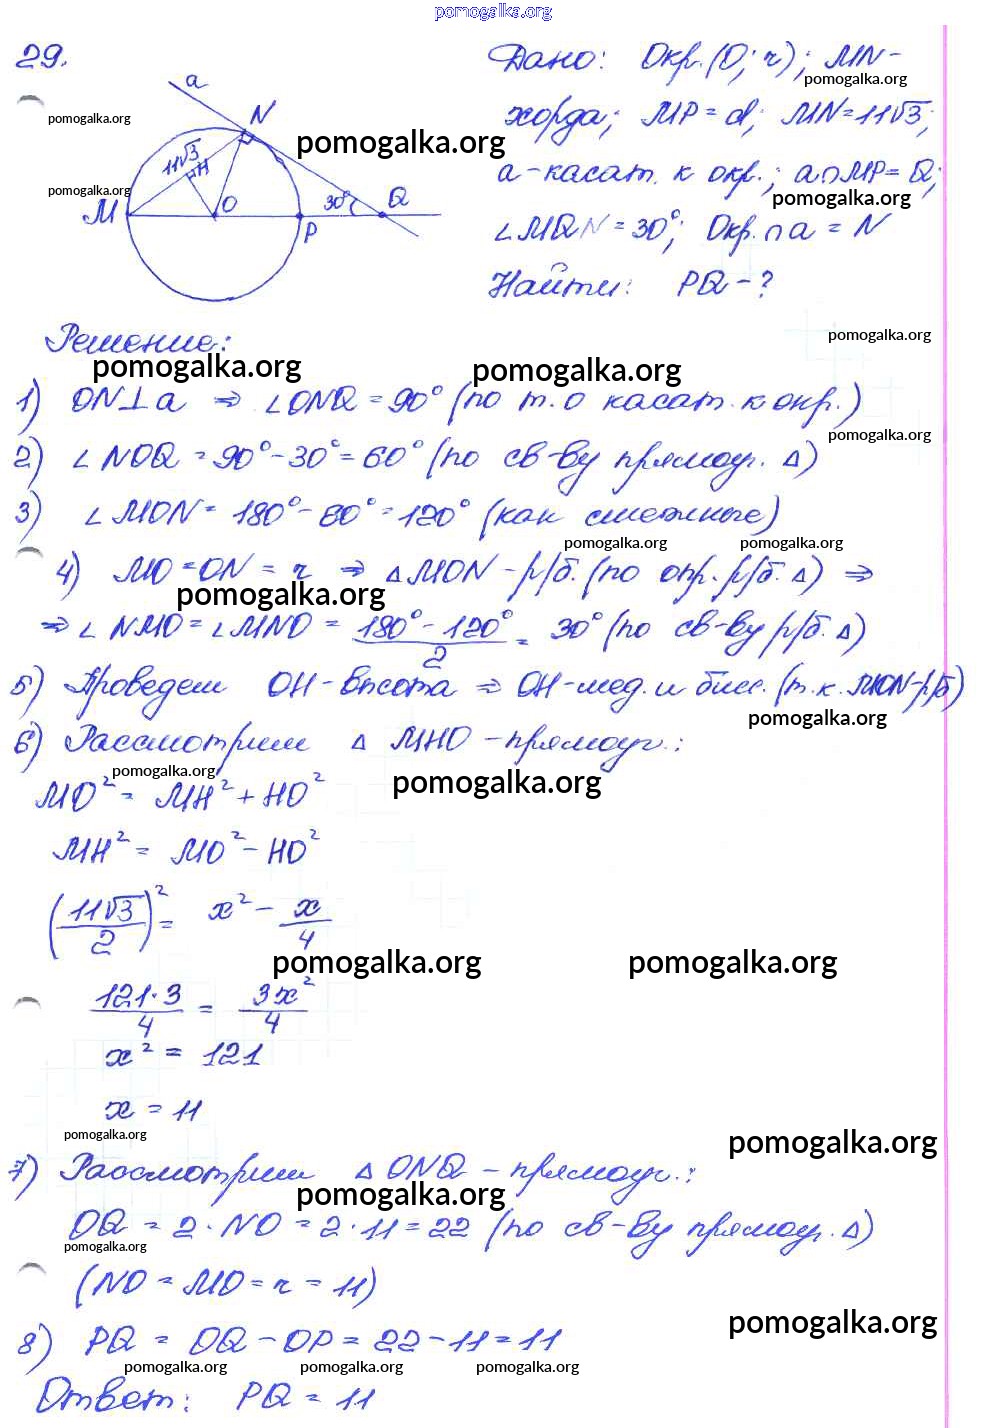 pomogalka.org
29.
Дано: Окр.(O; r); MN -
pomogalka.org
хорда; MP = d; MN = 11√3;
pomogalka.org
pomogalka.org
a - касат. к окр.; a∩MP = Q;
pomogalka.org
pomogalka.org
∠MQN = 30°; Окр. ∩ a = N
Найти: PQ - ?
a
N
11√3
H
M
O
30°
Q
P
pomogalka.org
Решение:
pomogalka.org
pomogalka.org
1) ON⊥a ⇒ ∠ONQ = 90° (по т. о касат. к окр.)
pomogalka.org
2) ∠NOQ = 90° - 30° = 60° (по св-ву прямоуг. Δ)
3) ∠MON = 180° - 60° = 120° (как смежные)
pomogalka.org
pomogalka.org
4) MO = ON = r ⇒ ΔMON - р/б. (по опр. р/б. Δ) ⇒
pomogalka.org
⇒ ∠NMO = ∠MNO = (180° - 120°)/2 = 30° (по св-ву р/б. Δ)
5) Проведем OH - высота ⇒ OH - мед. и бисс. (т.к. MON - р/б)
pomogalka.org
6) Рассмотрим Δ MHO - прямоуг.:
pomogalka.org
pomogalka.org
MO² = MH² + HO²
MH² = MO² - HO²
(11√3/2)² = x² - x/4
pomogalka.org
pomogalka.org
121·3/4 = 3x²/4
x² = 121
x = 11
pomogalka.org
pomogalka.org
7) Рассмотрим Δ ONQ - прямоуг.:
pomogalka.org
OQ = 2·NO = 2·11 = 22 (по св-ву прямоуг. Δ)
pomogalka.org
(NO = MO = r = 11)
pomogalka.org
8) PQ = OQ - OP = 22 - 11 = 11
pomogalka.org
pomogalka.org
pomogalka.org
Ответ: PQ = 11